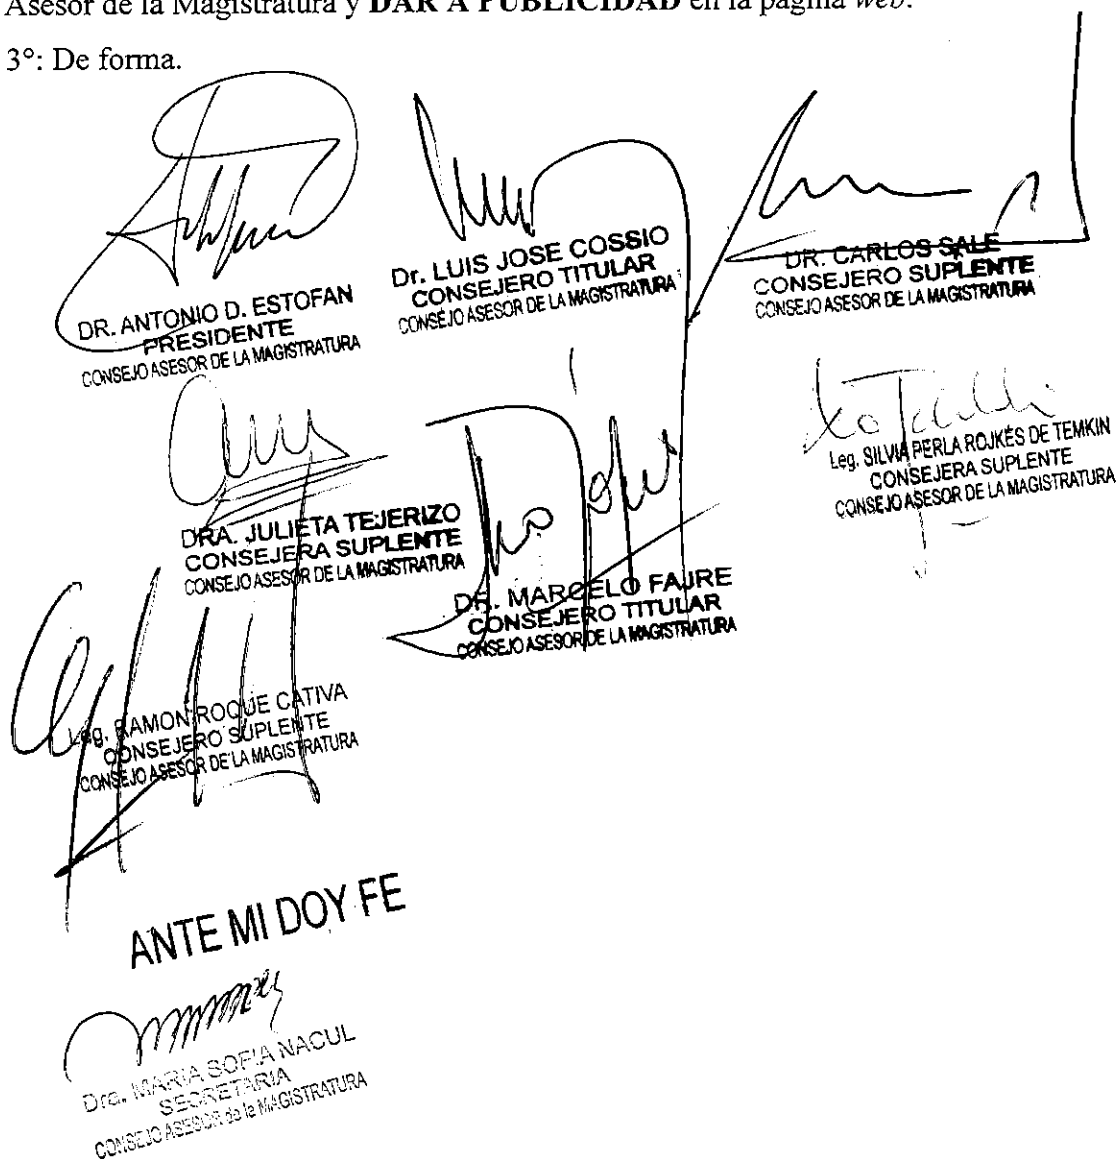 Asesor de la Magistratura y DAR A PUBLICIDAD en la página web.
3°: De forma.
DR. ANTONIO D. ESTOFAN
PRESIDENTE
CONSEJO ASESOR DE LA MAGISTRATURA
Dr. LUIS JOSE COSSIO
CONSEJERO TITULAR
CONSEJO ASESOR DE LA MAGISTRATURA
DR. CARLOS SALE
CONSEJERO SUPLENTE
CONSEJO ASESOR DE LA MAGISTRATURA
Leg. SILVIA PERLA ROJKÉS DE TEMKIN
CONSEJERA SUPLENTE
CONSEJO ASESOR DE LA MAGISTRATURA
DRA. JULIETA TEJERIZO
CONSEJERA SUPLENTE
CONSEJO ASESOR DE LA MAGISTRATURA
DR. MARCELO FAJRE
CONSEJERO TITULAR
CONSEJO ASESOR DE LA MAGISTRATURA
Leg. RAMON ROQUE CATIVA
CONSEJERO SUPLENTE
CONSEJO ASESOR DE LA MAGISTRATURA
ANTE MI DOY FE
Dra. MARIA SOFIA NACUL
SECRETARIA
CONSEJO ASESOR de la MAGISTRATURA